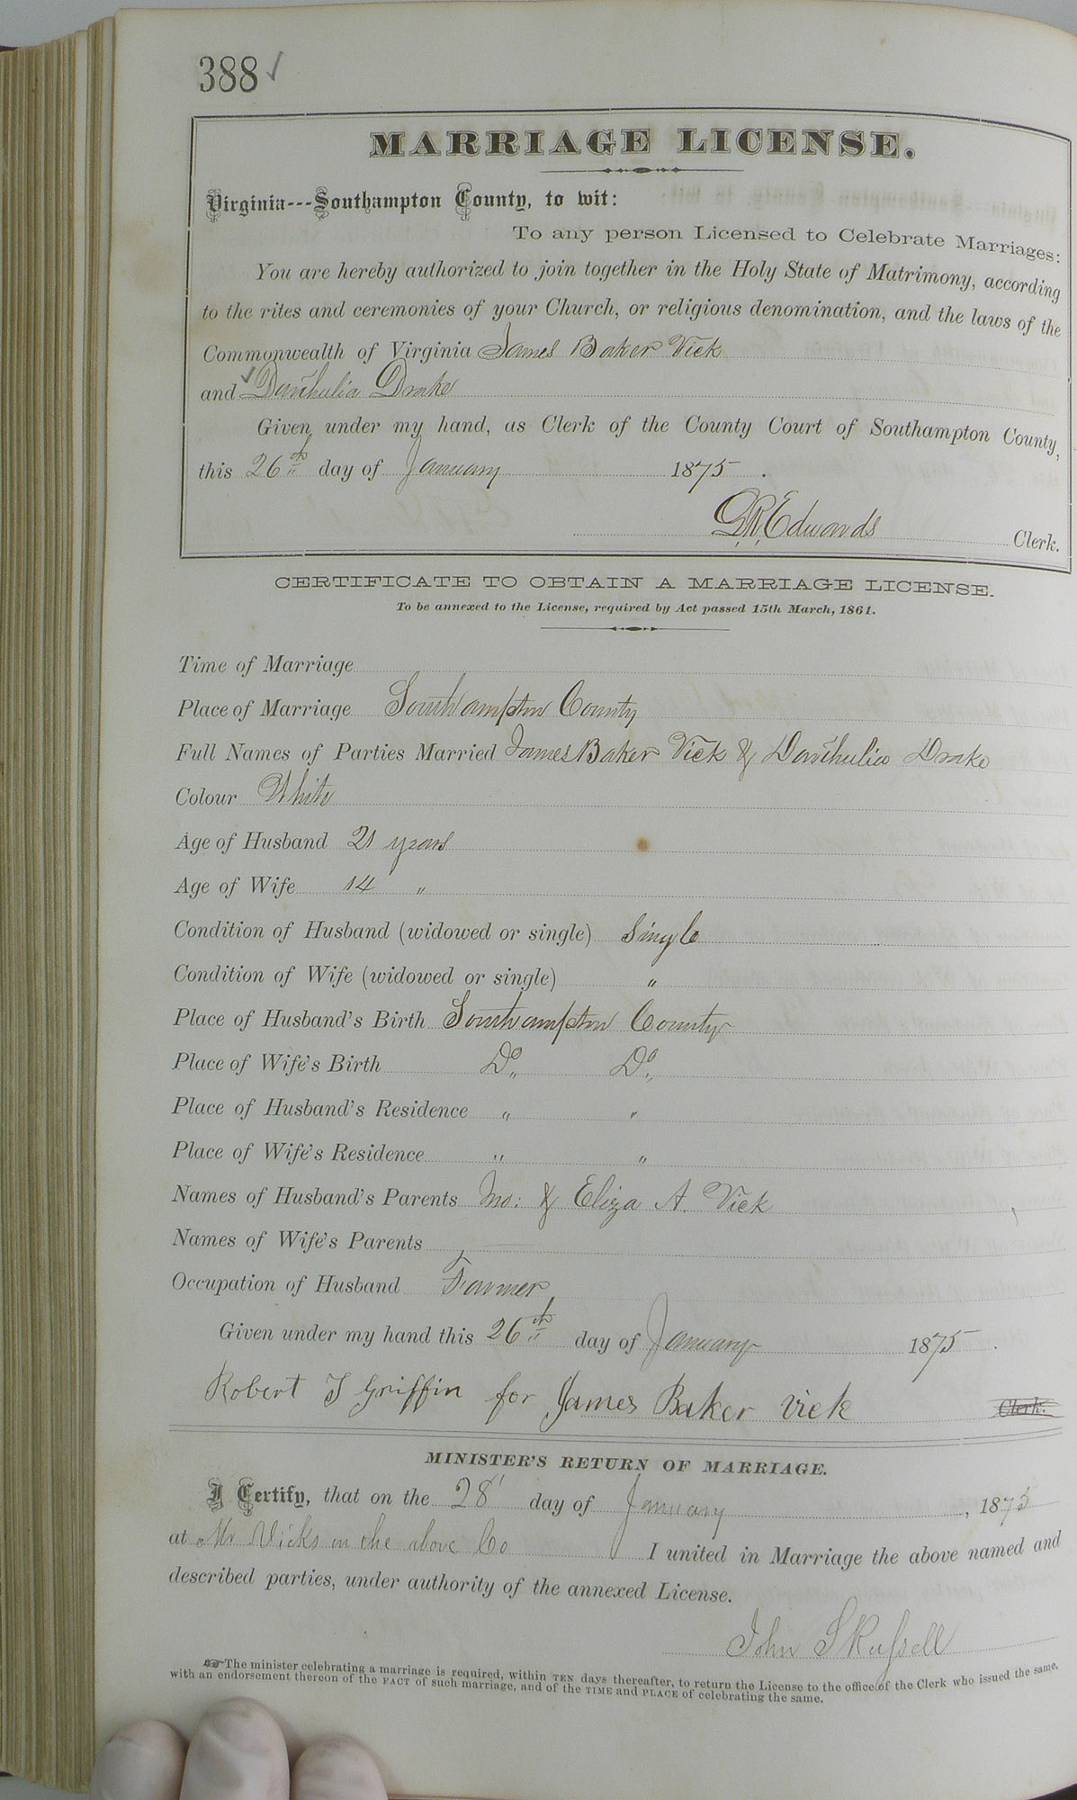 388 ✓
MARRIAGE LICENSE.
Virginia---Southampton County, to wit:
To any person Licensed to Celebrate Marriages:
You are hereby authorized to join together in the Holy State of Matrimony, according
to the rites and ceremonies of your Church, or religious denomination, and the laws of the
Commonwealth of Virginia James Baker Vick
and ✓ Danthulia Drake
Given under my hand, as Clerk of the County Court of Southampton County,
this 26th day of January 1875.
L. R. Edwards Clerk.
CERTIFICATE TO OBTAIN A MARRIAGE LICENSE.
To be annexed to the License, required by Act passed 15th March, 1861.
Time of Marriage
Place of Marriage Southampton County
Full Names of Parties Married James Baker Vick & Danthulia Drake
Colour White
Age of Husband 21 years
Age of Wife 14 "
Condition of Husband (widowed or single) Single
Condition of Wife (widowed or single) "
Place of Husband's Birth Southampton County
Place of Wife's Birth Do Do
Place of Husband's Residence " "
Place of Wife's Residence " "
Names of Husband's Parents Jno: & Eliza A. Vick
Names of Wife's Parents
Occupation of Husband Farmer
Given under my hand this 26th day of January 1875.
Robert T Griffin for James Baker Vick Clerk.
MINISTER'S RETURN OF MARRIAGE.
I Certify, that on the 28 day of January, 1875
at Mr Vicks in the above Co I united in Marriage the above named and
described parties, under authority of the annexed License.
John S Russell
☞ The minister celebrating a marriage is required, within TEN days thereafter, to return the License to the office of the Clerk who issued the same,
with an endorsement thereon of the FACT of such marriage, and of the TIME and PLACE of celebrating the same.